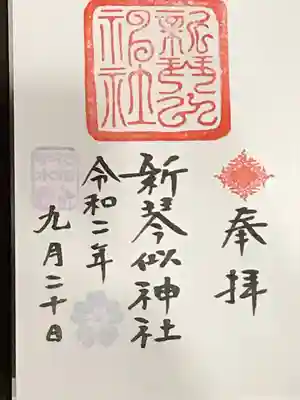 奉拝
新琴似神社
令和二年
九月二十日
新琴似神社